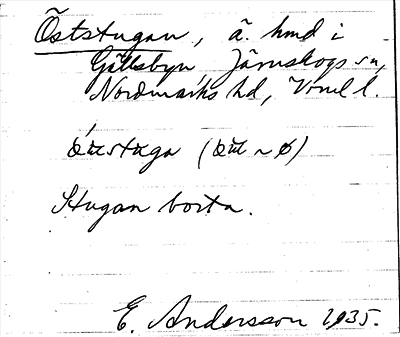 Öststugan, ä. hmd i
Gällsbyn Järnskogs sn,
Nordmarks hd, Vrml l.
(
Stugan borta.
E. Andersson 1935.